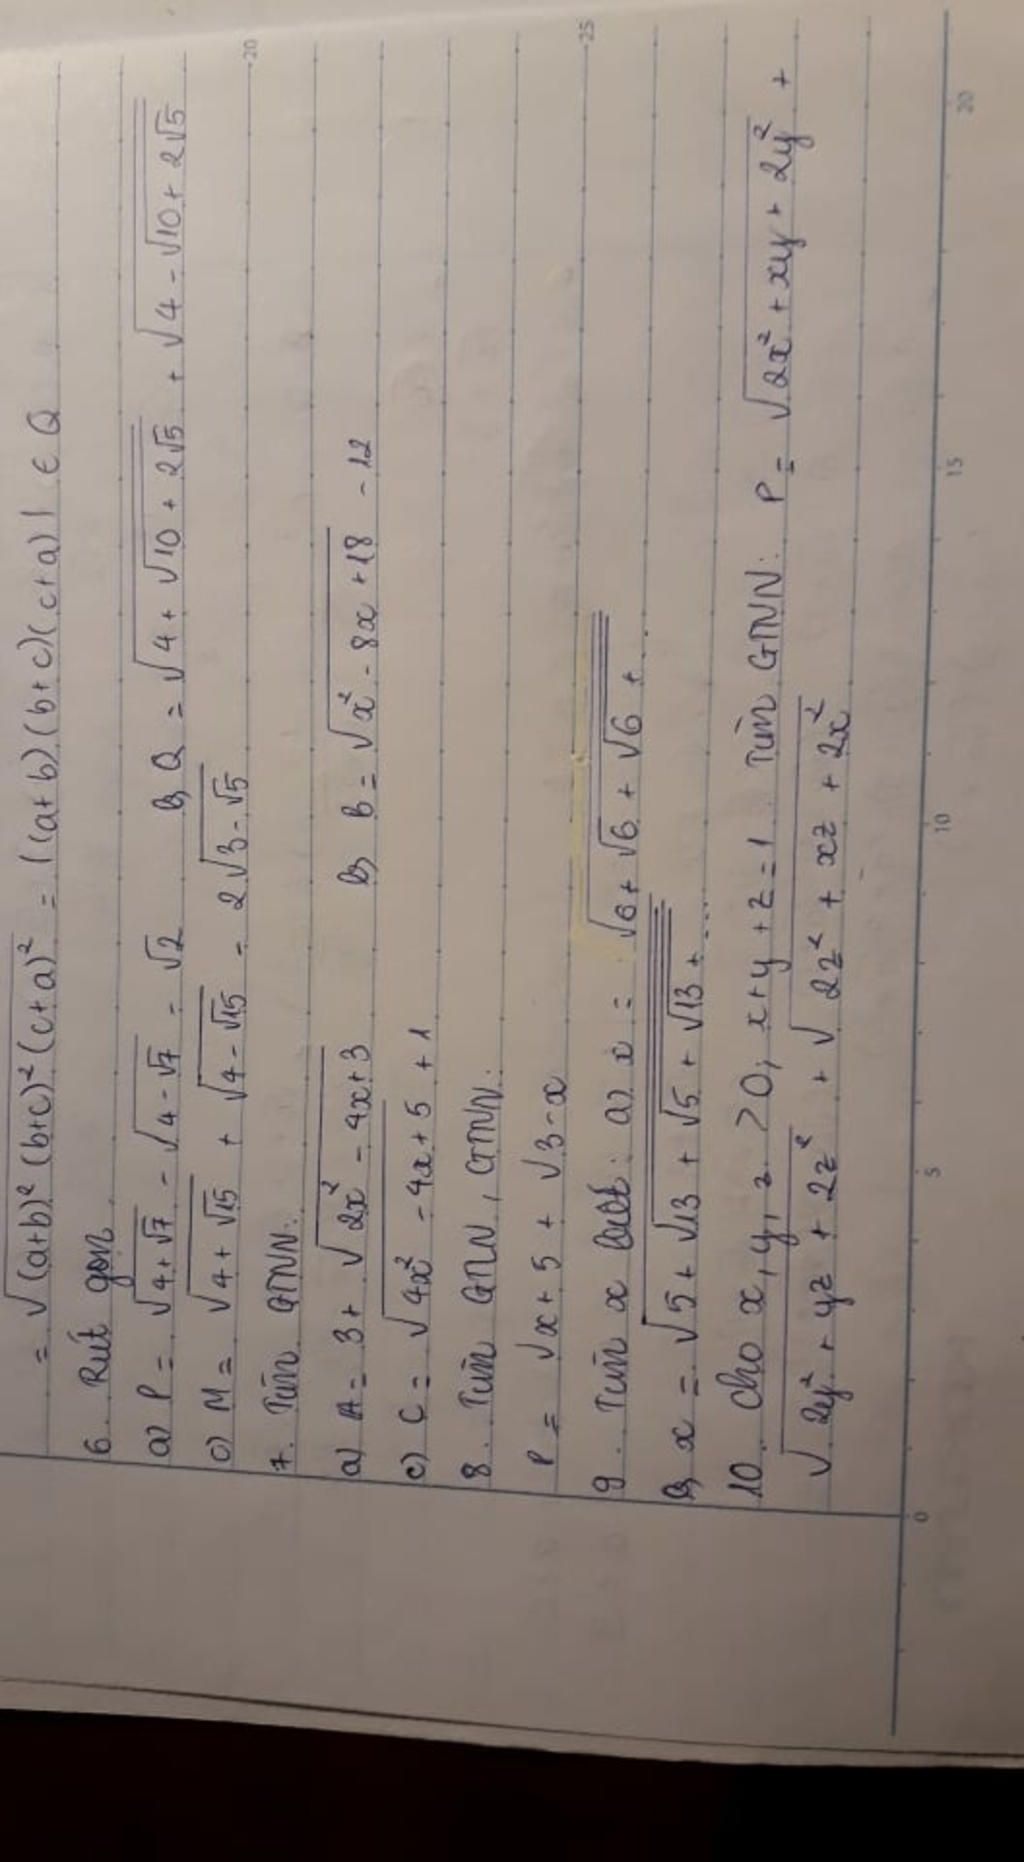 = √(a+b)² (b+c)² (c+a)² = |(a+b)(b+c)(c+a)| ∈ Q
6. Rút gọn
a) P = √4+√7 - √4-√7 - √2 b, Q = √4+√10+2√5 + √4-√10+2√5
c) M = √4+√15 + √4-√15 - 2√3-√5
7. Tìm GTNN:
a) A = 3 + √2x² - 4x+3 b, B = √x² - 8x +18 - 12
c) C = √4x² - 4x+5 + 1
8. Tìm GTLN, GTNN:
P = √x+5 + √3-x
9. Tìm x biết: a) x = √6+√6+√6+
b, x = √5+√13+√5+√13+ ....
10. Cho x, y, z > 0, x+y+z=1. Tìm GTNN: P = √2x²+xy+2y² +
√2y²+yz+2z² + √2z²+xz+2x²
20
25
0 5 10 15 20